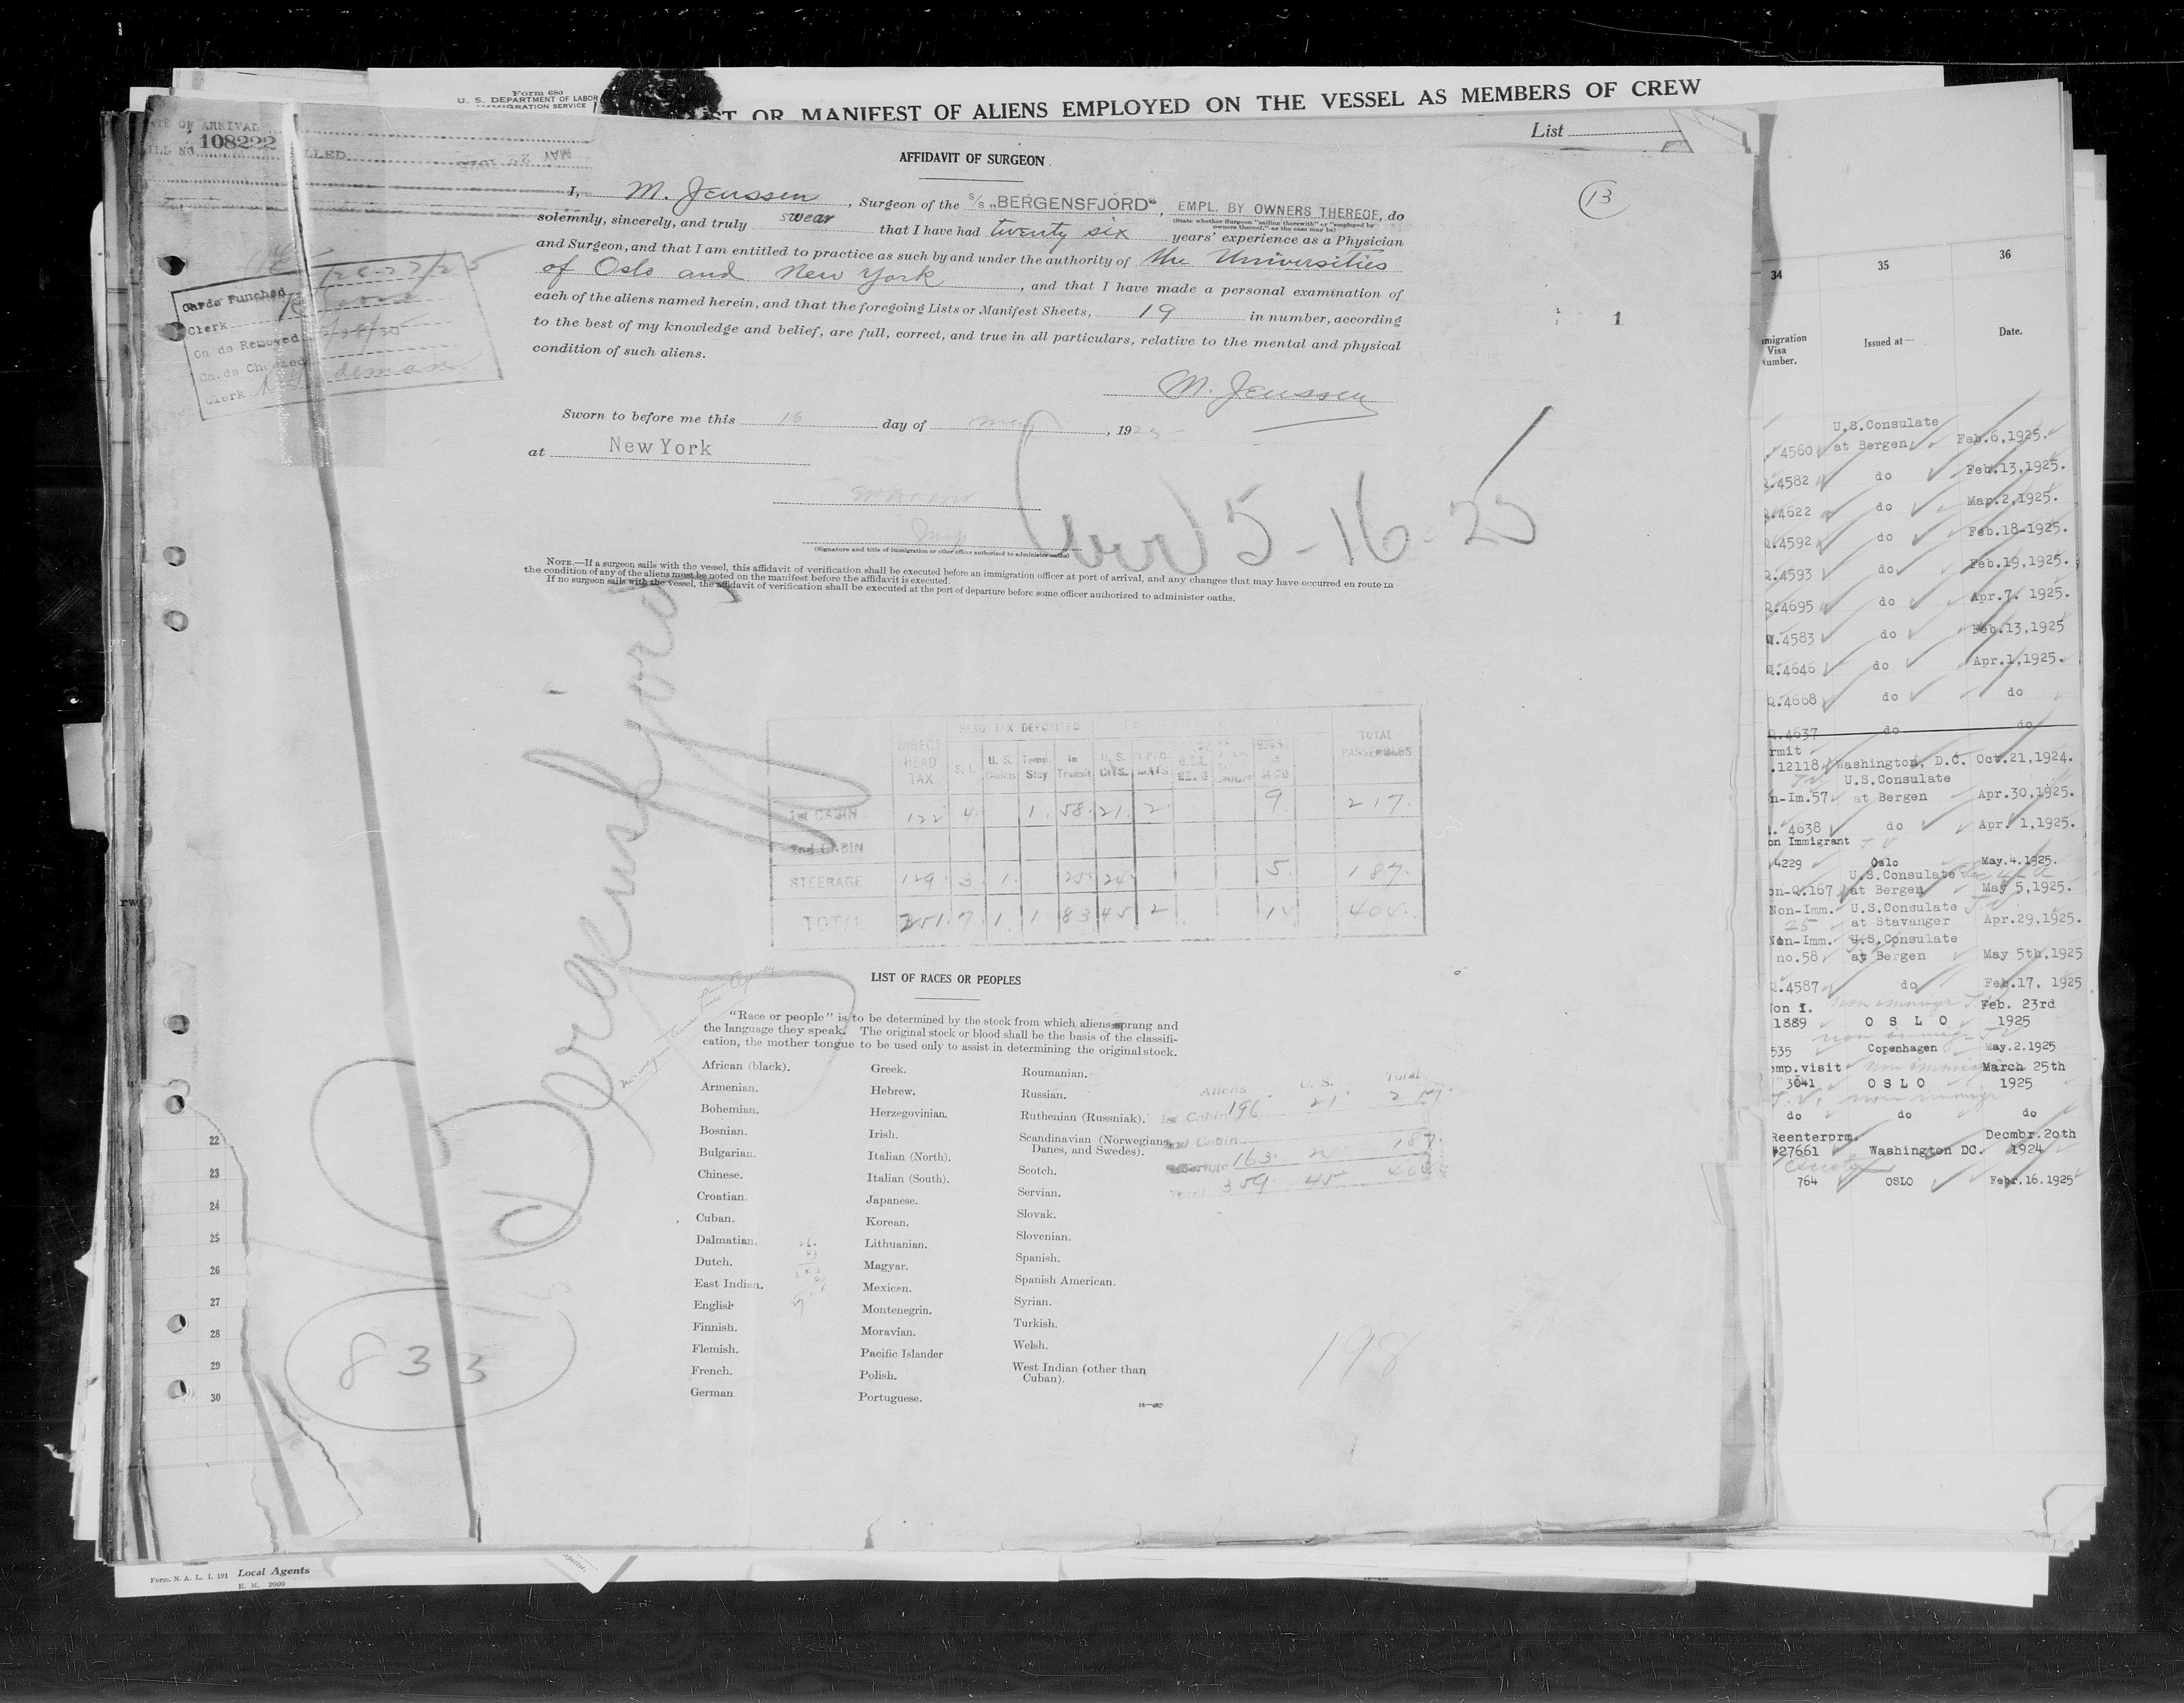 Form 680
U. S. DEPARTMENT OF LABOR
IMMIGRATION SERVICE
ST OR MANIFEST OF ALIENS EMPLOYED ON THE VESSEL AS MEMBERS OF CREW
List
DATE OF ARRIVAL
BILL No. 108222
MAY 22 1925
13
AFFIDAVIT OF SURGEON
I, M. Jenssen, Surgeon of the S/S „BERGENSFJORD", EMPL. BY OWNERS THEREOF, do
(State whether Surgeon "sailing therewith" or "employed by
owners thereof," as the case may be)
solemnly, sincerely, and truly swear that I have had twenty six years' experience as a Physician
and Surgeon, and that I am entitled to practice as such by and under the authority of the Universities
of Oslo and New York, and that I have made a personal examination of
each of the aliens named herein, and that the foregoing Lists or Manifest Sheets, 19 in number, according
to the best of my knowledge and belief, are full, correct, and true in all particulars, relative to the mental and physical
condition of such aliens.
M. Jenssen
Sworn to before me this 16 day of May, 1925
at New York
(Signature and title of immigration or other officer authorized to administer oaths)
5-16-25
NOTE.—If a surgeon sails with the vessel, this affidavit of verification shall be executed before an immigration officer at port of arrival, and any changes that may have occurred en route in
the condition of any of the aliens must be noted on the manifest before the affidavit is executed.
If no surgeon sails with the vessel, the affidavit of verification shall be executed at the port of departure before some officer authorized to administer oaths.
Cards Punched
Clerk
Cards Removed
Cards Checked
Clerk
Bergensfjord
HEAD TAX DEPOSITED
DIRECT HEAD TAX S.I. U. S. Claims Temp. Stay In Transit U. S. CITS. TOTAL PASSENGERS
1st CABIN 122 4 1 58 21 2 9 217
2nd CABIN
STEERAGE 129 3 1 25 24 5 187
TOTAL 251 7 1 1 83 45 2 14 404
LIST OF RACES OR PEOPLES
"Race or people" is to be determined by the stock from which aliens sprang and
the language they speak. The original stock or blood shall be the basis of the classifi-
cation, the mother tongue to be used only to assist in determining the original stock.
African (black).
Armenian.
Bohemian.
Bosnian.
Bulgarian.
Chinese.
Croatian.
Cuban.
Dalmatian.
Dutch.
East Indian.
English
Finnish.
Flemish.
French.
German
Greek.
Hebrew.
Herzegovinian.
Irish.
Italian (North).
Italian (South).
Japanese.
Korean.
Lithuanian.
Magyar.
Mexican.
Montenegrin.
Moravian.
Pacific Islander
Polish.
Portuguese.
Roumanian.
Russian.
Ruthenian (Russniak).
Scandinavian (Norwegians,
Danes, and Swedes).
Scotch.
Servian.
Slovak.
Slovenian.
Spanish.
Spanish American.
Syrian.
Turkish.
Welsh.
West Indian (other than
Cuban).
Aliens U. S. Total
1st Cabin 196 21 217
2nd Cabin
Steerage 163 24 187
Total 359 45 404
198
833
22
23
24
25
26
27
28
29
30
1
34
35
36
Immigration
Visa
Number.
Issued at—
Date.
4560 U.S.Consulate at Bergen Feb.6,1925.
Q.4582 do Feb.13,1925.
Q.4622 do Mar.2,1925.
Q.4592 do Feb.18-1925.
Q.4593 do Feb.19,1925.
Q.4695 do Apr.7. 1925.
Q.4583 do Feb.13,1925
Q.4646 do Apr.1,1925.
Q.4668 do do
Q.4637 do do
rmit
.12118 Washington, D.C. Oct.21,1924.
n-Im.57 U.S.Consulate at Bergen Apr.30,1925.
4638 do Apr. 1,1925.
on Immigrant
4229 Oslo May.4.1925.
on-Q.167 U.S.Consulate at Bergen May 5,1925.
Non-Imm. 25 U.S.Consulate at Stavanger Apr.29,1925.
Non-Imm. no.58 U.S.Consulate at Bergen May 5th,1925
Q.4587 do Feb.17, 1925
Non I. 1889 OSLO Feb. 23rd 1925
535 Copenhagen May.2.1925
emp.visit 3041 OSLO March 25th 1925
do do do
Reenterprm. #27661 Washington DC. Decmbr.20th 1924
764 OSLO Febr.16.1925
Form. N. A. L. I. 191 Local Agents
E. M. 2000